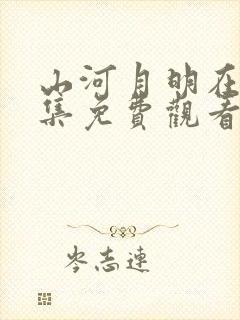 山河月明在
集免費觀看
岑志連